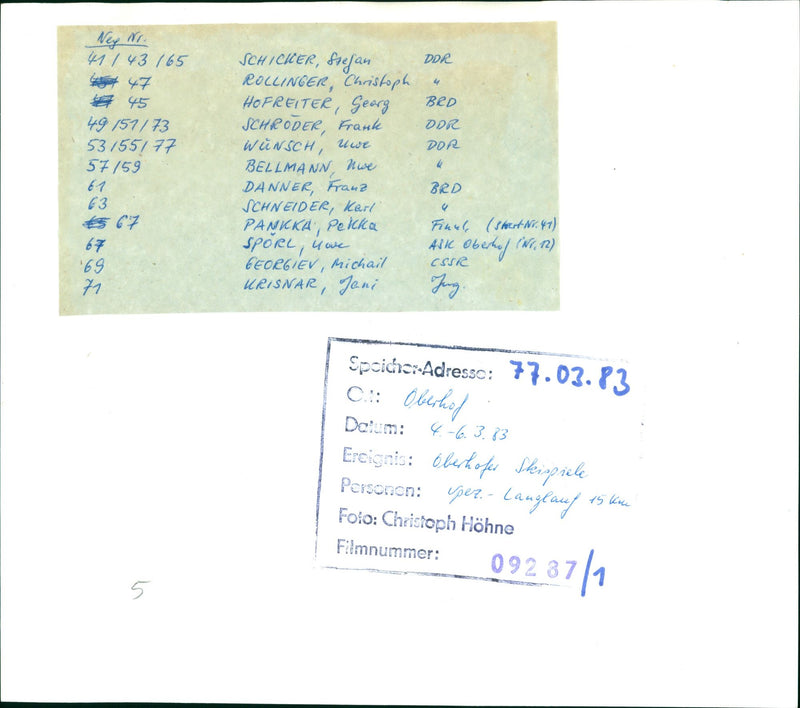 Neg Nr.
41 / 43 / 65 SCHICKER, Stefan DDR
47 ROLLINGER, Christoph "
45 HOFREITER, Georg BRD
49/51/73 SCHRÖDER, Frank DDR
53/55/77 WÜNSCH, Uwe DDR
57/59 BELLMANN, Uwe "
61 DANNER, Franz BRD
63 SCHNEIDER, Karl "
65 67 PANKKA, Pekka Finnl. (StartNr. 41)
67 SPÖRL, Uwe ASK Oberhof (Nr. 12)
69 GEORGIEV, Michail CSSR
71 KRISNAR, Jani Jug.
Speicher-Adresse: 77.03.83
Ort: Oberhof
Datum: 4.-6.3.83
Ereignis: Oberhofer Skispiele
Personen: spez.- Langlauf 15 km
Foto: Christoph Höhne
Filmnummer: 09287/1
5